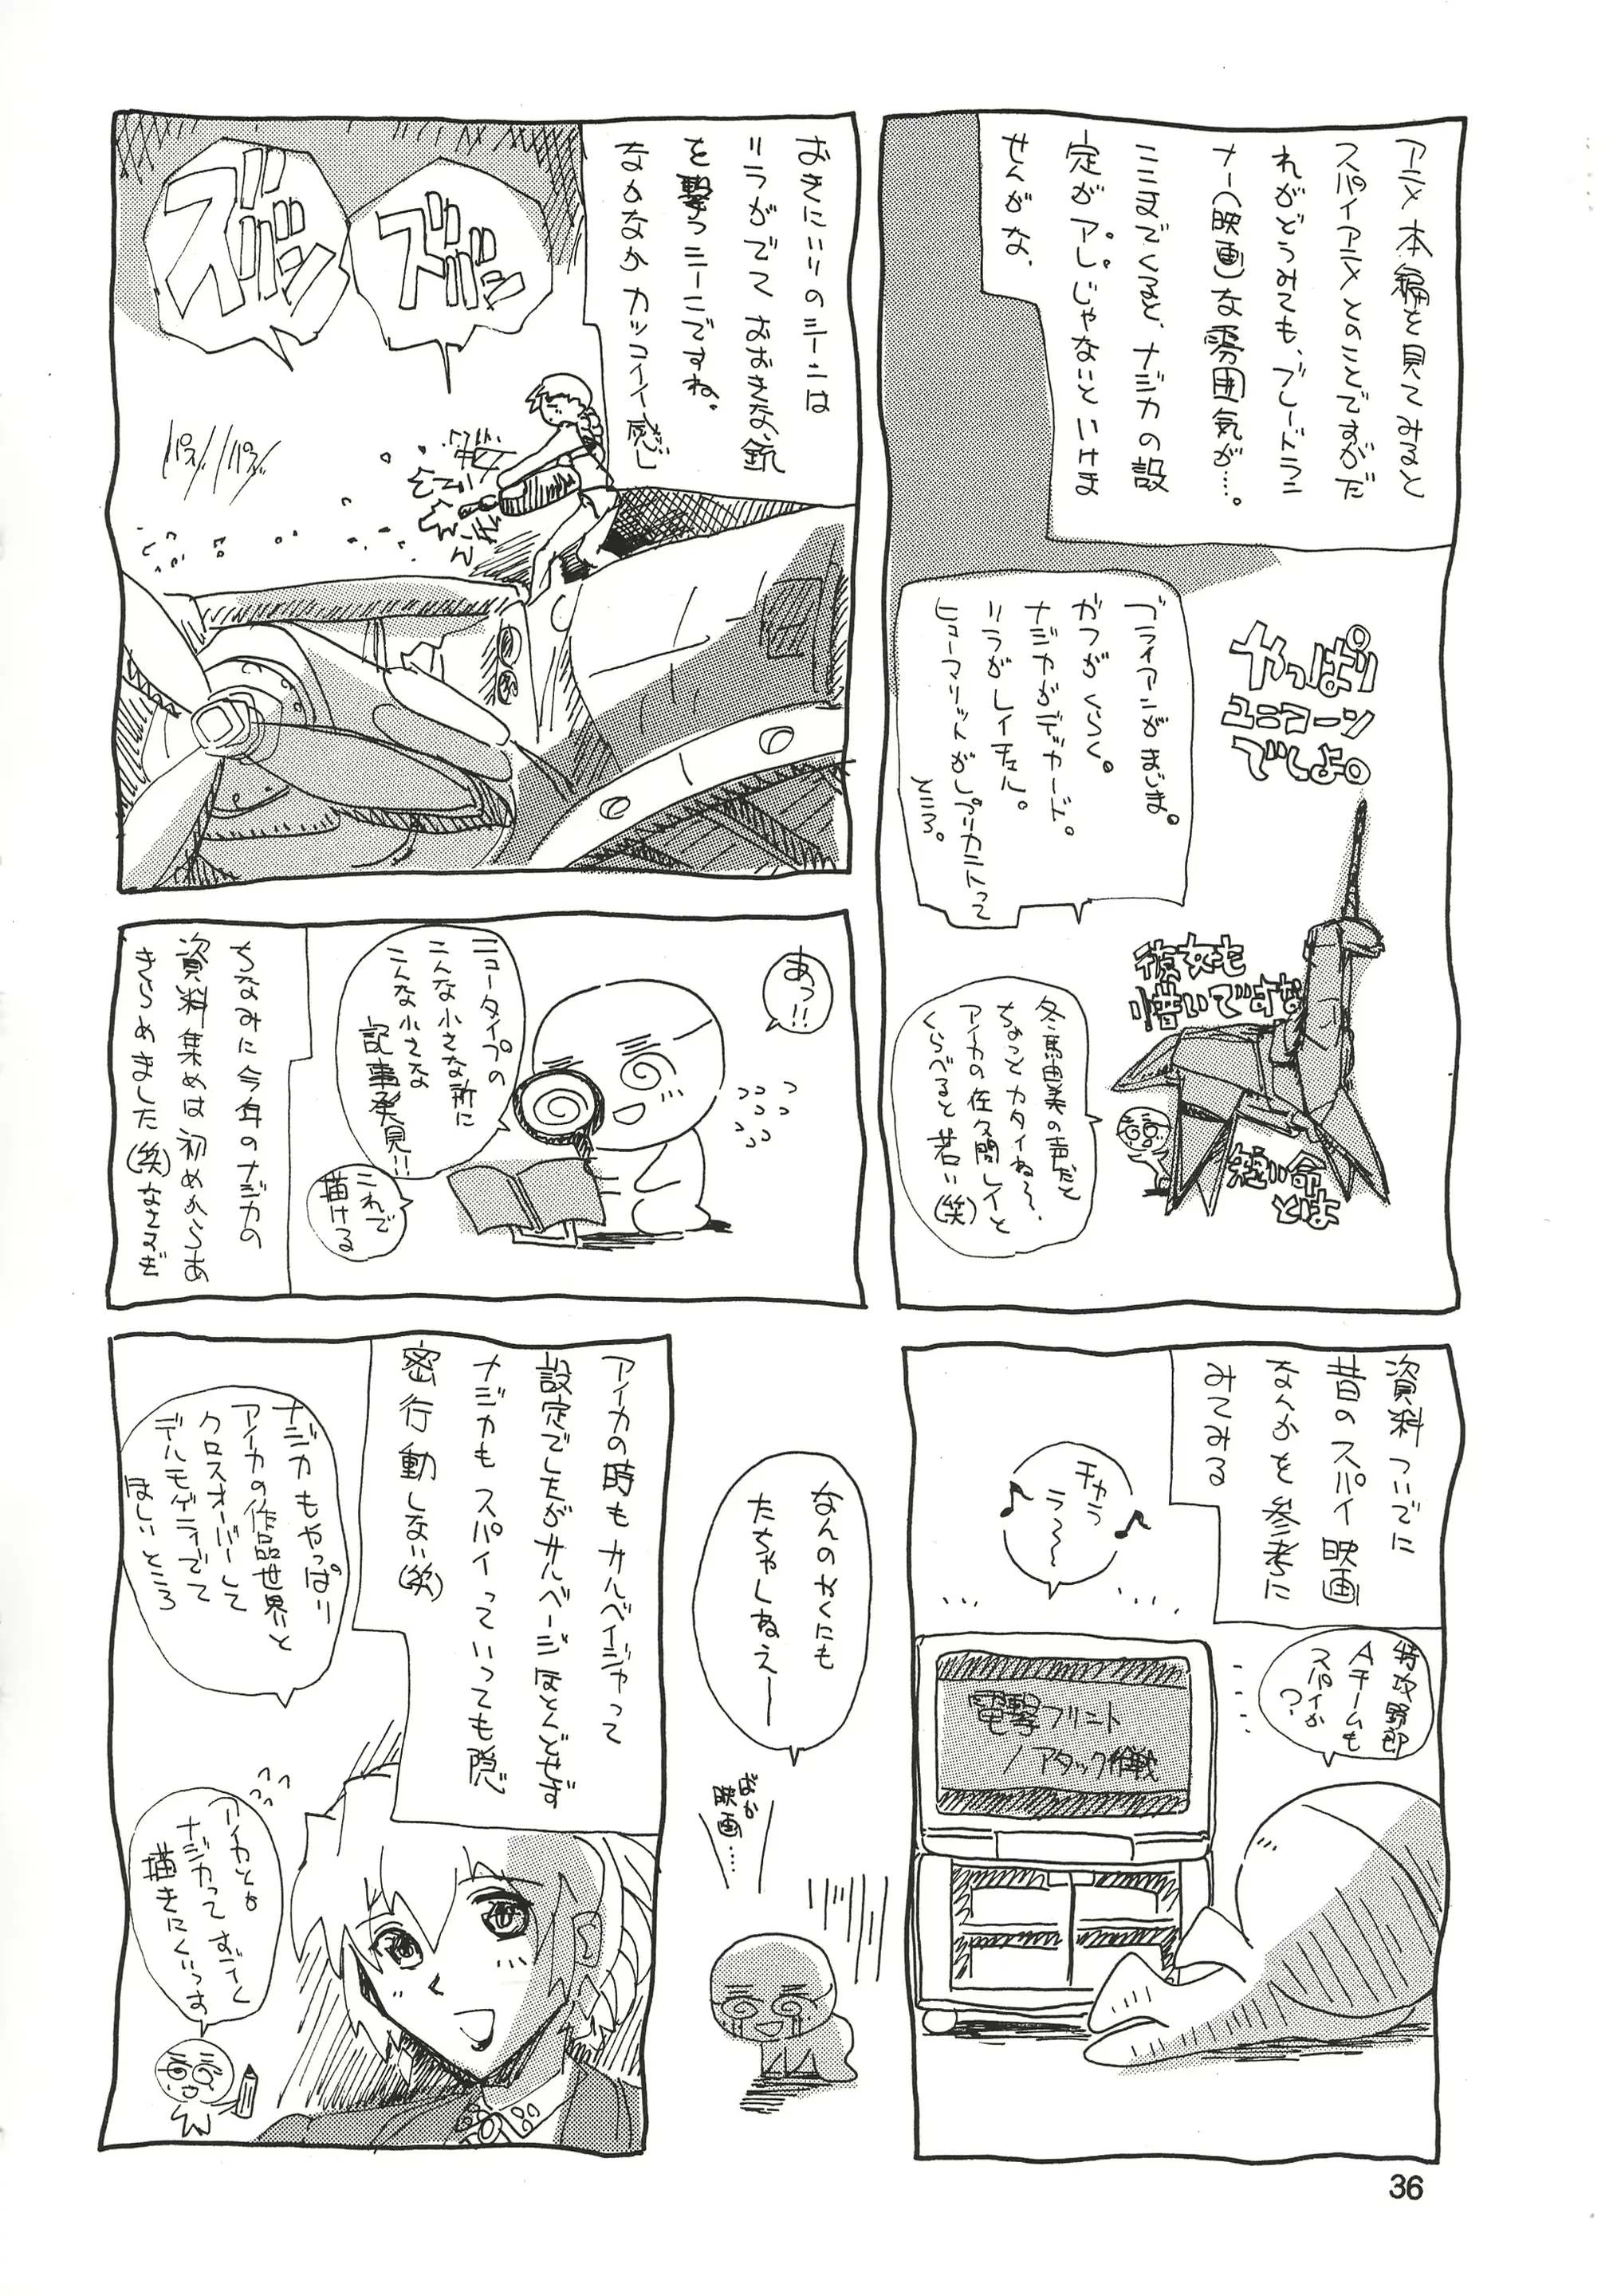 アニメ本編を見てみると
スパイアニメとのことですがだ
れがどうみても、ブレードラン
ナー(映画)な雰囲気が…。
ここまでくると、ナジカの設
定がアレじゃないといけま
せんがな、
やっぱり
ユニコーン
でしょ。
ブライアンがまじま。
がつがくらく。
ナジカがデッカード。
リラがレイチェル。
ヒューマリットがレプリカントって
ところ。
彼女も
惜いですな
短い命
とは
冬馬由美の声だと
ちょっとカタイね〜、
アイカの佐々間レイと
くらべると若い(笑)
おきにいりのシーンは
リラがでておおきな銃
を撃つシーンですね。
なかなかカッコイイ感じ
ズバン
ズバン
バス//バス//
あっ!!
ニュータイプの
こんな小さな所に
こんな小さな
記事発見!!
これで
描ける
ちなみに今年のナジカの
資料集めは初めからあ
きらめました(笑)なさすぎ
資料ついでに
昔のスパイ映画
なんかを参考に
みてみる
チャラ
ラ〜〜
特攻野郎
Aチームも
スパイか
?
電撃フリント
/アタック作戦
なんのやくにも
たちゃしねえ――
ばか
映画……
アイカの時もサルベイジャって
設定でしたがサルベージほとんどせず
ナジカもスパイっていっても隠
密行動しない(笑)
ナジカもやっぱり
アイカの作品世界と
クロスオーバーして
デルモゲッティでて
ほしいところ
アイカとか
ナジカってすごく
描きにくいっす
36